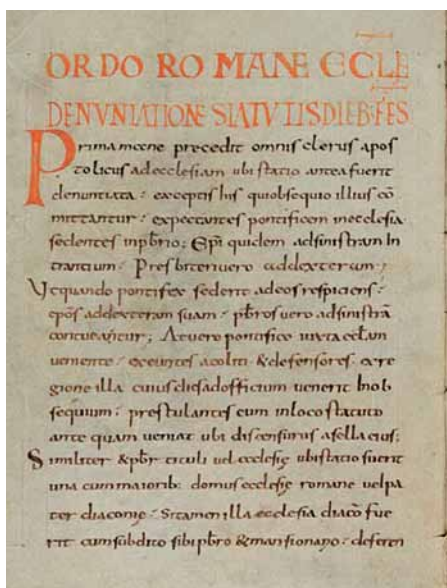 ORDO ROMANE ECCLE
DENUNTIATIONE STATUTIS DIEB FES
Prima mcene precedit omnis clerus apos
tolicus ad ecclesiam ubi statio antea fuerit
denuntiata: exceptis his qui obsequio illius cō
mittantur: expectantes pontificem in ecclesia
sedentes in pbrio; Epi quidem ad sinistram In
trantium: Presbiteri vero ad dexteram:
Ut quando pontifex sederit ad eos respiciens:
epos ad dexteram suam: pbros vero ad sinistrā
contueatur; At vero pontifice iuxta eccłam
veniente: exeuntes acoliti & defensores ex re
gione illa cuius dies ad officium venerit In ob
sequium: prestulantes eum in loco statuto
ante quam veniat ubi discensurus a sella eius;
Similiter & pbr tituli vel ecclesię ubi statio fuerit
una cum maiorib: domus ecclesię romane vel pa
ter diaconię: Si tamen illa ecclesia diacō fue
rit cum subdito sibi pbro & mansionario: deferen